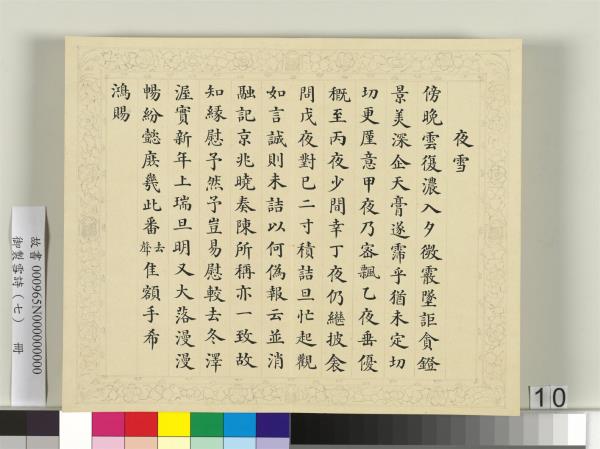 夜雪
傍晚雲復濃入夕微霰墜詎貪鐙
景美深企天膏遂霈乎猶未定切
切更厪意甲夜乃密飄乙夜垂優
概至丙夜少間幸丁夜仍繼披衾
問戊夜對已二寸積詰旦忙起觀
如言誠則未詰以何偽報云並消
融記京兆曉奏陳所稱亦一致故
知緣慰予然予豈易慰較去冬澤
渥實新年上瑞旦明又大落漫漫
暢紛懿庶幾此番去聲隹額手希
鴻賜
故書000965N000000000
御製雪詩(七) 冊
10